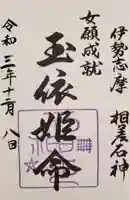 伊勢志摩
相差石神
女願成就
玉依姫命
令和三年十二月八日